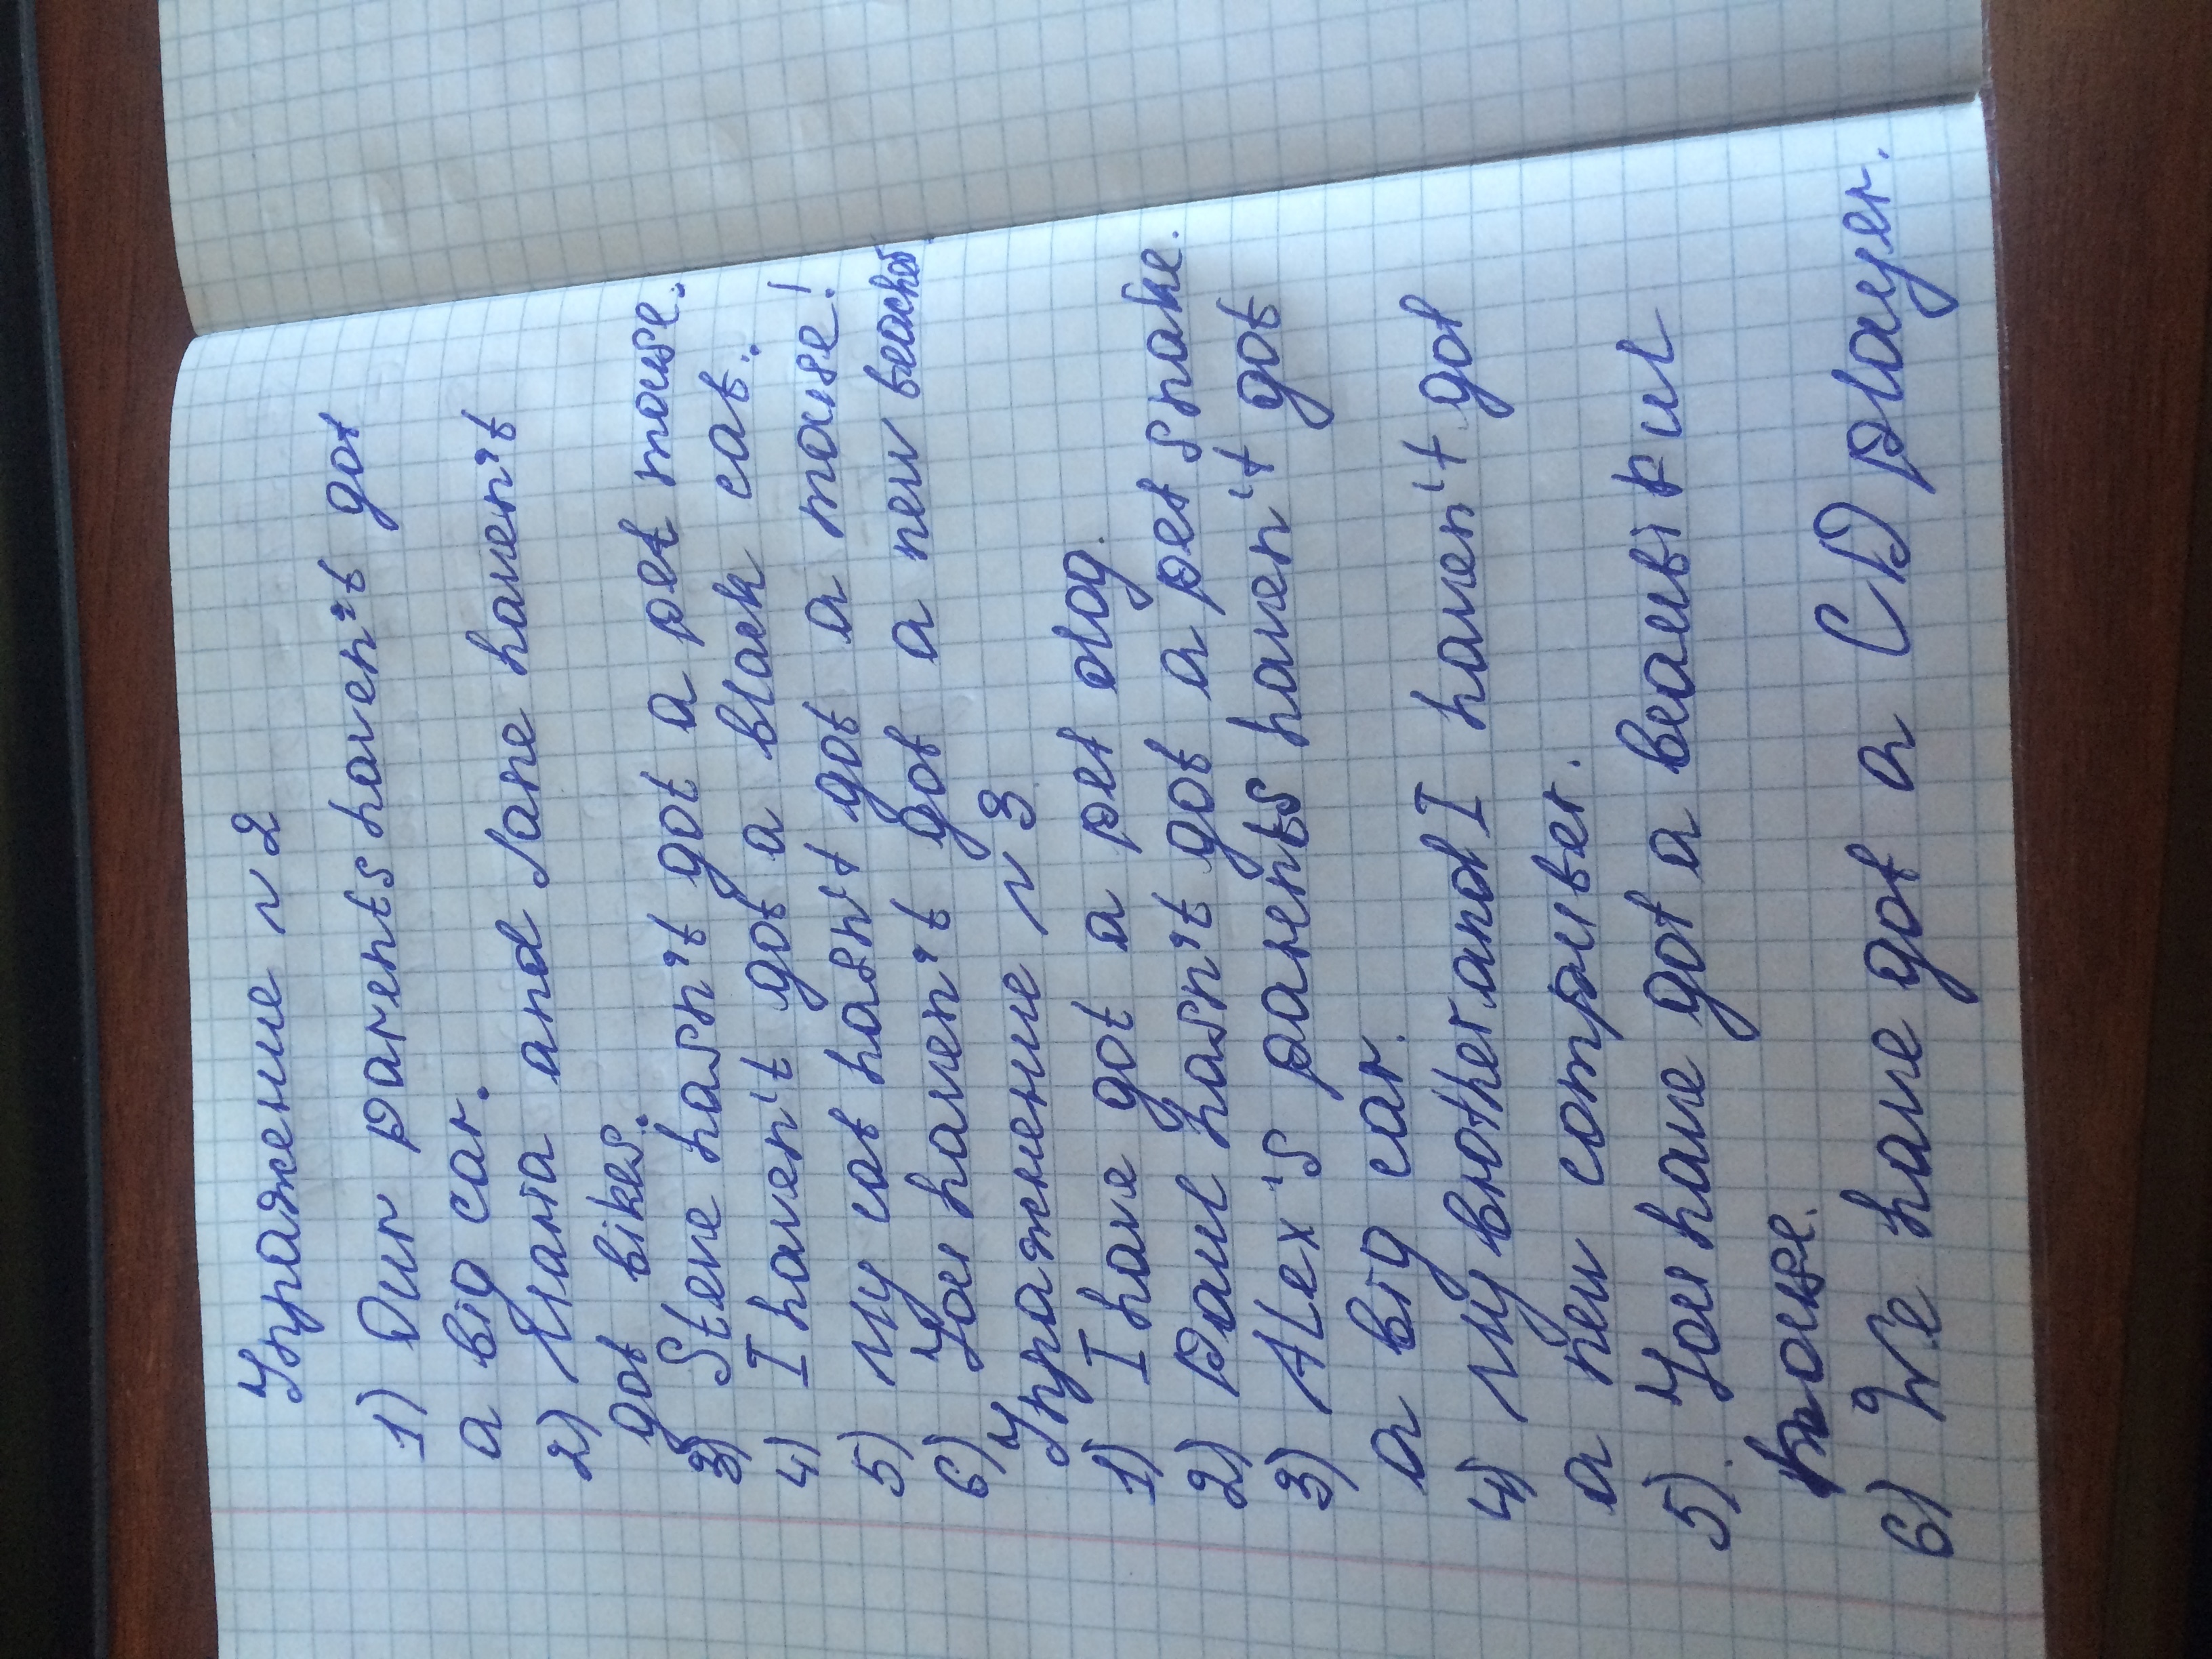 Упражнение N 2
1) Our parents haven't got
a big car.
2) Maria and Jane haven't
got bikes.
3) Steve hasn't got a pet mouse.
4) I haven't got a black cat.
5) My cat hasn't got a mouse!
6) You haven't got a new teacher
Упражнение N 3
1) I have got a pet dog.
2) Paul hasn't got a pet snake.
3) Alex's parents haven't got
a big car.
4) My brother and I haven't got
a new computer.
5) You have got a beautiful
house.
6) We have got a CD player.